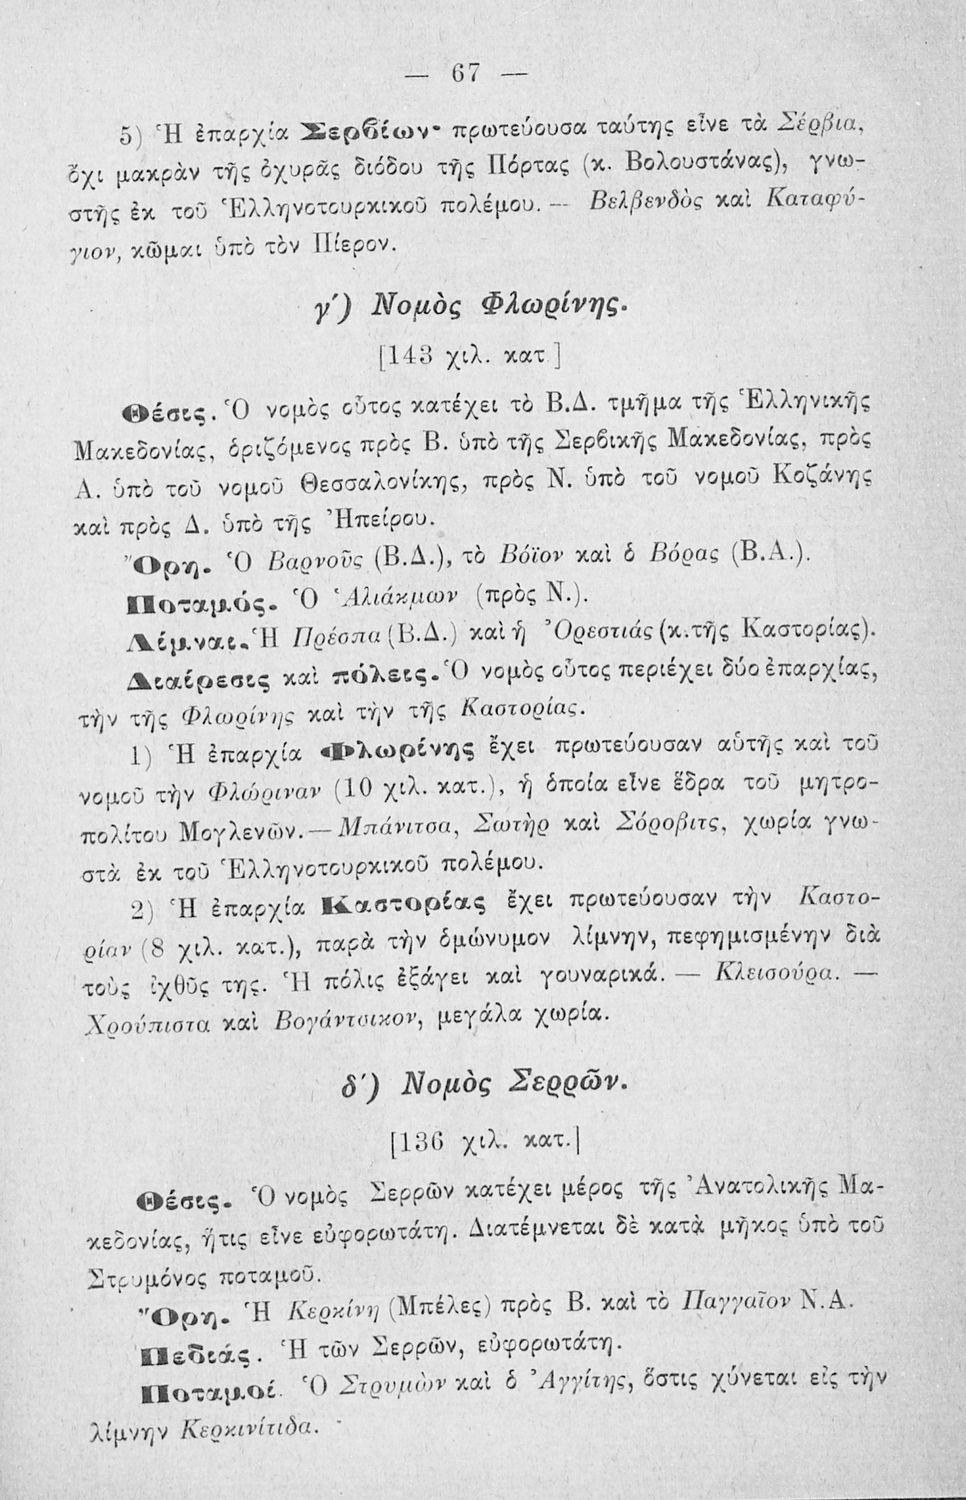 — 67 —
5) Ἡ ἐπαρχία Σερβίων· πρωτεύουσα ταύτης εἶνε τὰ Σέρβια,
ὄχι μακρὰν τῆς ὀχυρᾶς διόδου τῆς Πόρτας (κ. Βολουστάνας), γνω-
στῆς ἐκ τοῦ Ἑλληνοτουρκικοῦ πολέμου. — Βελβενδὸς καὶ Καταφύ-
γιον, κῶμαι ὑπὸ τὸν Πίερον.
γ') Νομὸς Φλωρίνης.
[143 χιλ. κατ]
Θέσις. Ὁ νομὸς οὗτος κατέχει τὸ Β.Δ. τμῆμα τῆς Ἑλληνικῆς
Μακεδονίας, ὁριζόμενος πρὸς Β. ὑπὸ τῆς Σερβικῆς Μακεδονίας, πρὸς
Α. ὑπὸ τοῦ νομοῦ Θεσσαλονίκης, πρὸς Ν. ὑπὸ τοῦ νομοῦ Κοζάνης
καὶ πρὸς Δ. ὑπὸ τῆς Ἠπείρου.
Ὄρη. Ὁ Βαρνοῦς (Β.Δ.), τὸ Βόϊον καὶ ὁ Βόρας (Β.Α.).
Ποταμός. Ὁ Ἁλιάκμων (πρὸς Ν.).
Λίμναι. Ἡ Πρέσπα (Β.Δ.) καὶ ἡ Ὀρεστιάς (κ. τῆς Καστορίας).
Διαίρεσις καὶ πόλεις. Ὁ νομὸς οὗτος περιέχει δύο ἐπαρχίας,
τὴν τῆς Φλωρίνης καὶ τὴν τῆς Καστορίας.
1) Ἡ ἐπαρχία Φλωρίνης ἔχει πρωτεύουσαν αὑτῆς καὶ τοῦ
νομοῦ τὴν Φλώριναν (10 χιλ. κατ.), ἡ ὁποία εἶνε ἕδρα τοῦ μητρο-
πολίτου Μογλενῶν. — Μπάνιτσα, Σωτὴρ καὶ Σόροβιτς, χωρία γνω-
στὰ ἐκ τοῦ Ἑλληνοτουρκικοῦ πολέμου.
2) Ἡ ἐπαρχία Καστορίας ἔχει πρωτεύουσαν τὴν Καστο-
ρίαν (8 χιλ. κατ.), παρὰ τὴν ὁμώνυμον λίμνην, πεφημισμένην διὰ
τοὺς ἰχθῦς της. Ἡ πόλις ἐξάγει καὶ γουναρικά. — Κλεισούρα. —
Χρούπιστα καὶ Βογάντσικον, μεγάλα χωρία.
δ') Νομὸς Σερρῶν.
[136 χιλ. κατ.]
Θέσις. Ὁ νομὸς Σερρῶν κατέχει μέρος τῆς Ἀνατολικῆς Μα-
κεδονίας, ἥτις εἶνε εὐφορωτάτη. Διατέμνεται δὲ κατὰ μῆκος ὑπὸ τοῦ
Στρυμόνος ποταμοῦ.
Ὄρη. Ἡ Κερκίνη (Μπέλες) πρὸς Β. καὶ τὸ Παγγαῖον Ν.Α.
Πεδιάς. Ἡ τῶν Σερρῶν, εὐφορωτάτη.
Ποταμοί. Ὁ Στρυμὼν καὶ ὁ Ἀγγίτης, ὅστις χύνεται εἰς τὴν
λίμνην Κερκινίτιδα.